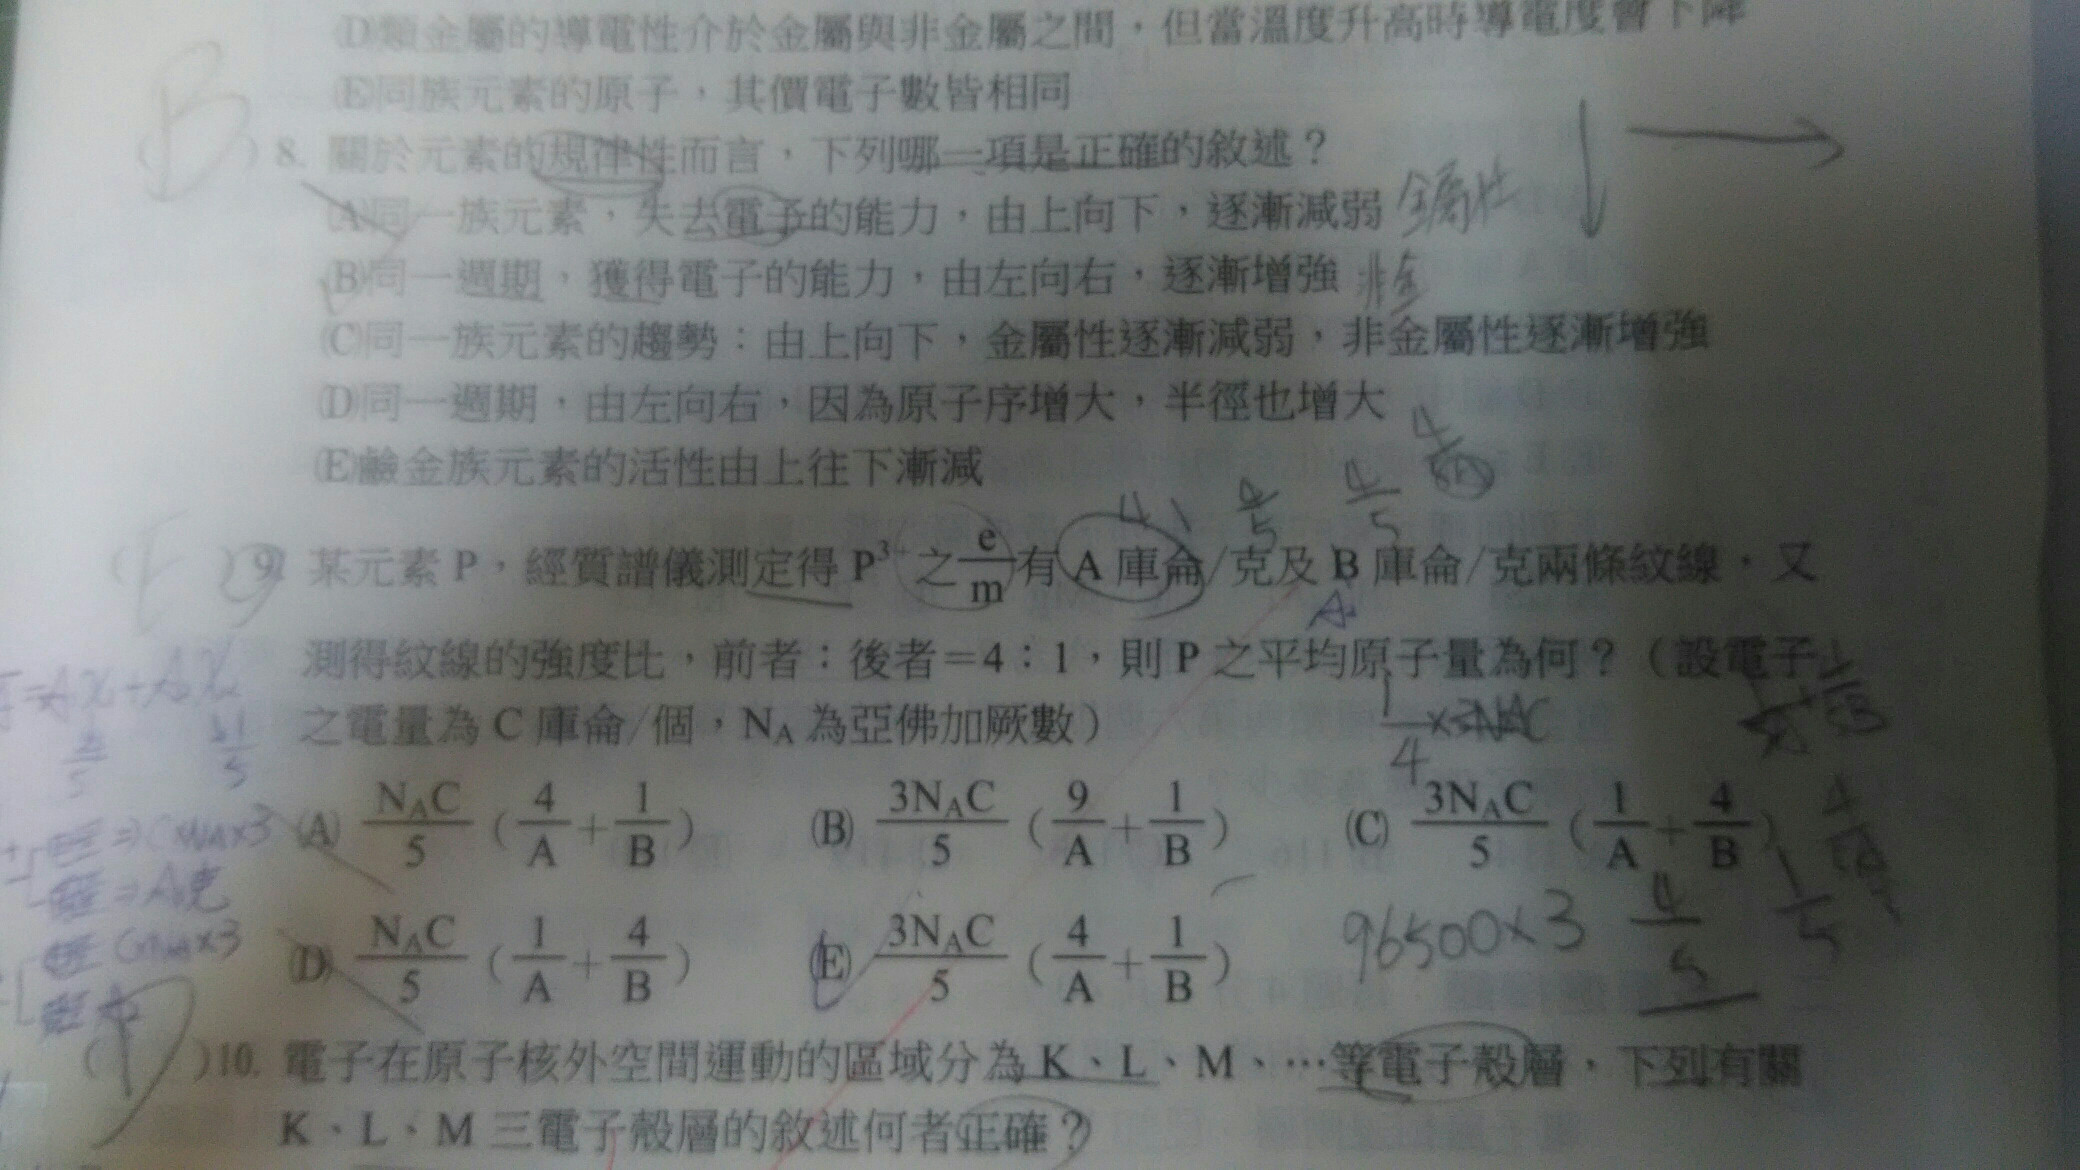 (D)類金屬的導電性介於金屬與非金屬之間，但當溫度升高時導電度會下降
(E)同族元素的原子，其價電子數皆相同
B
( ) 8. 關於元素的規律性而言，下列哪一項是正確的敘述？
(A)同一族元素，失去電子的能力，由上向下，逐漸減弱 金屬性
(B)同一週期，獲得電子的能力，由左向右，逐漸增強 非金
(C)同一族元素的趨勢：由上向下，金屬性逐漸減弱，非金屬性逐漸增強
(D)同一週期，由左向右，因為原子序增大，半徑也增大
(E)鹼金族元素的活性由上往下漸減
4 1 4/5 4/5
(E) 9. 某元素 P，經質譜儀測定得 P³⁺ 之 e/m 有 A 庫侖/克及 B 庫侖/克兩條紋線，又
測得紋線的強度比，前者：後者＝4：1，則 P 之平均原子量為何？（設電子
之電量為 C 庫侖/個，N_A 為亞佛加厥數）
1/4 ×3NAC
(A) N_AC/5 (4/A + 1/B) (B) 3N_AC/5 (9/A + 1/B) (C) 3N_AC/5 (1/A + 4/B)
(D) N_AC/5 (1/A + 4/B) (E) 3N_AC/5 (4/A + 1/B)
96500×3 4/5 1/5
(D) 10. 電子在原子核外空間運動的區域分為 K、L、M、…等電子殼層，下列有關
K、L、M 三電子殼層的敘述何者正確？